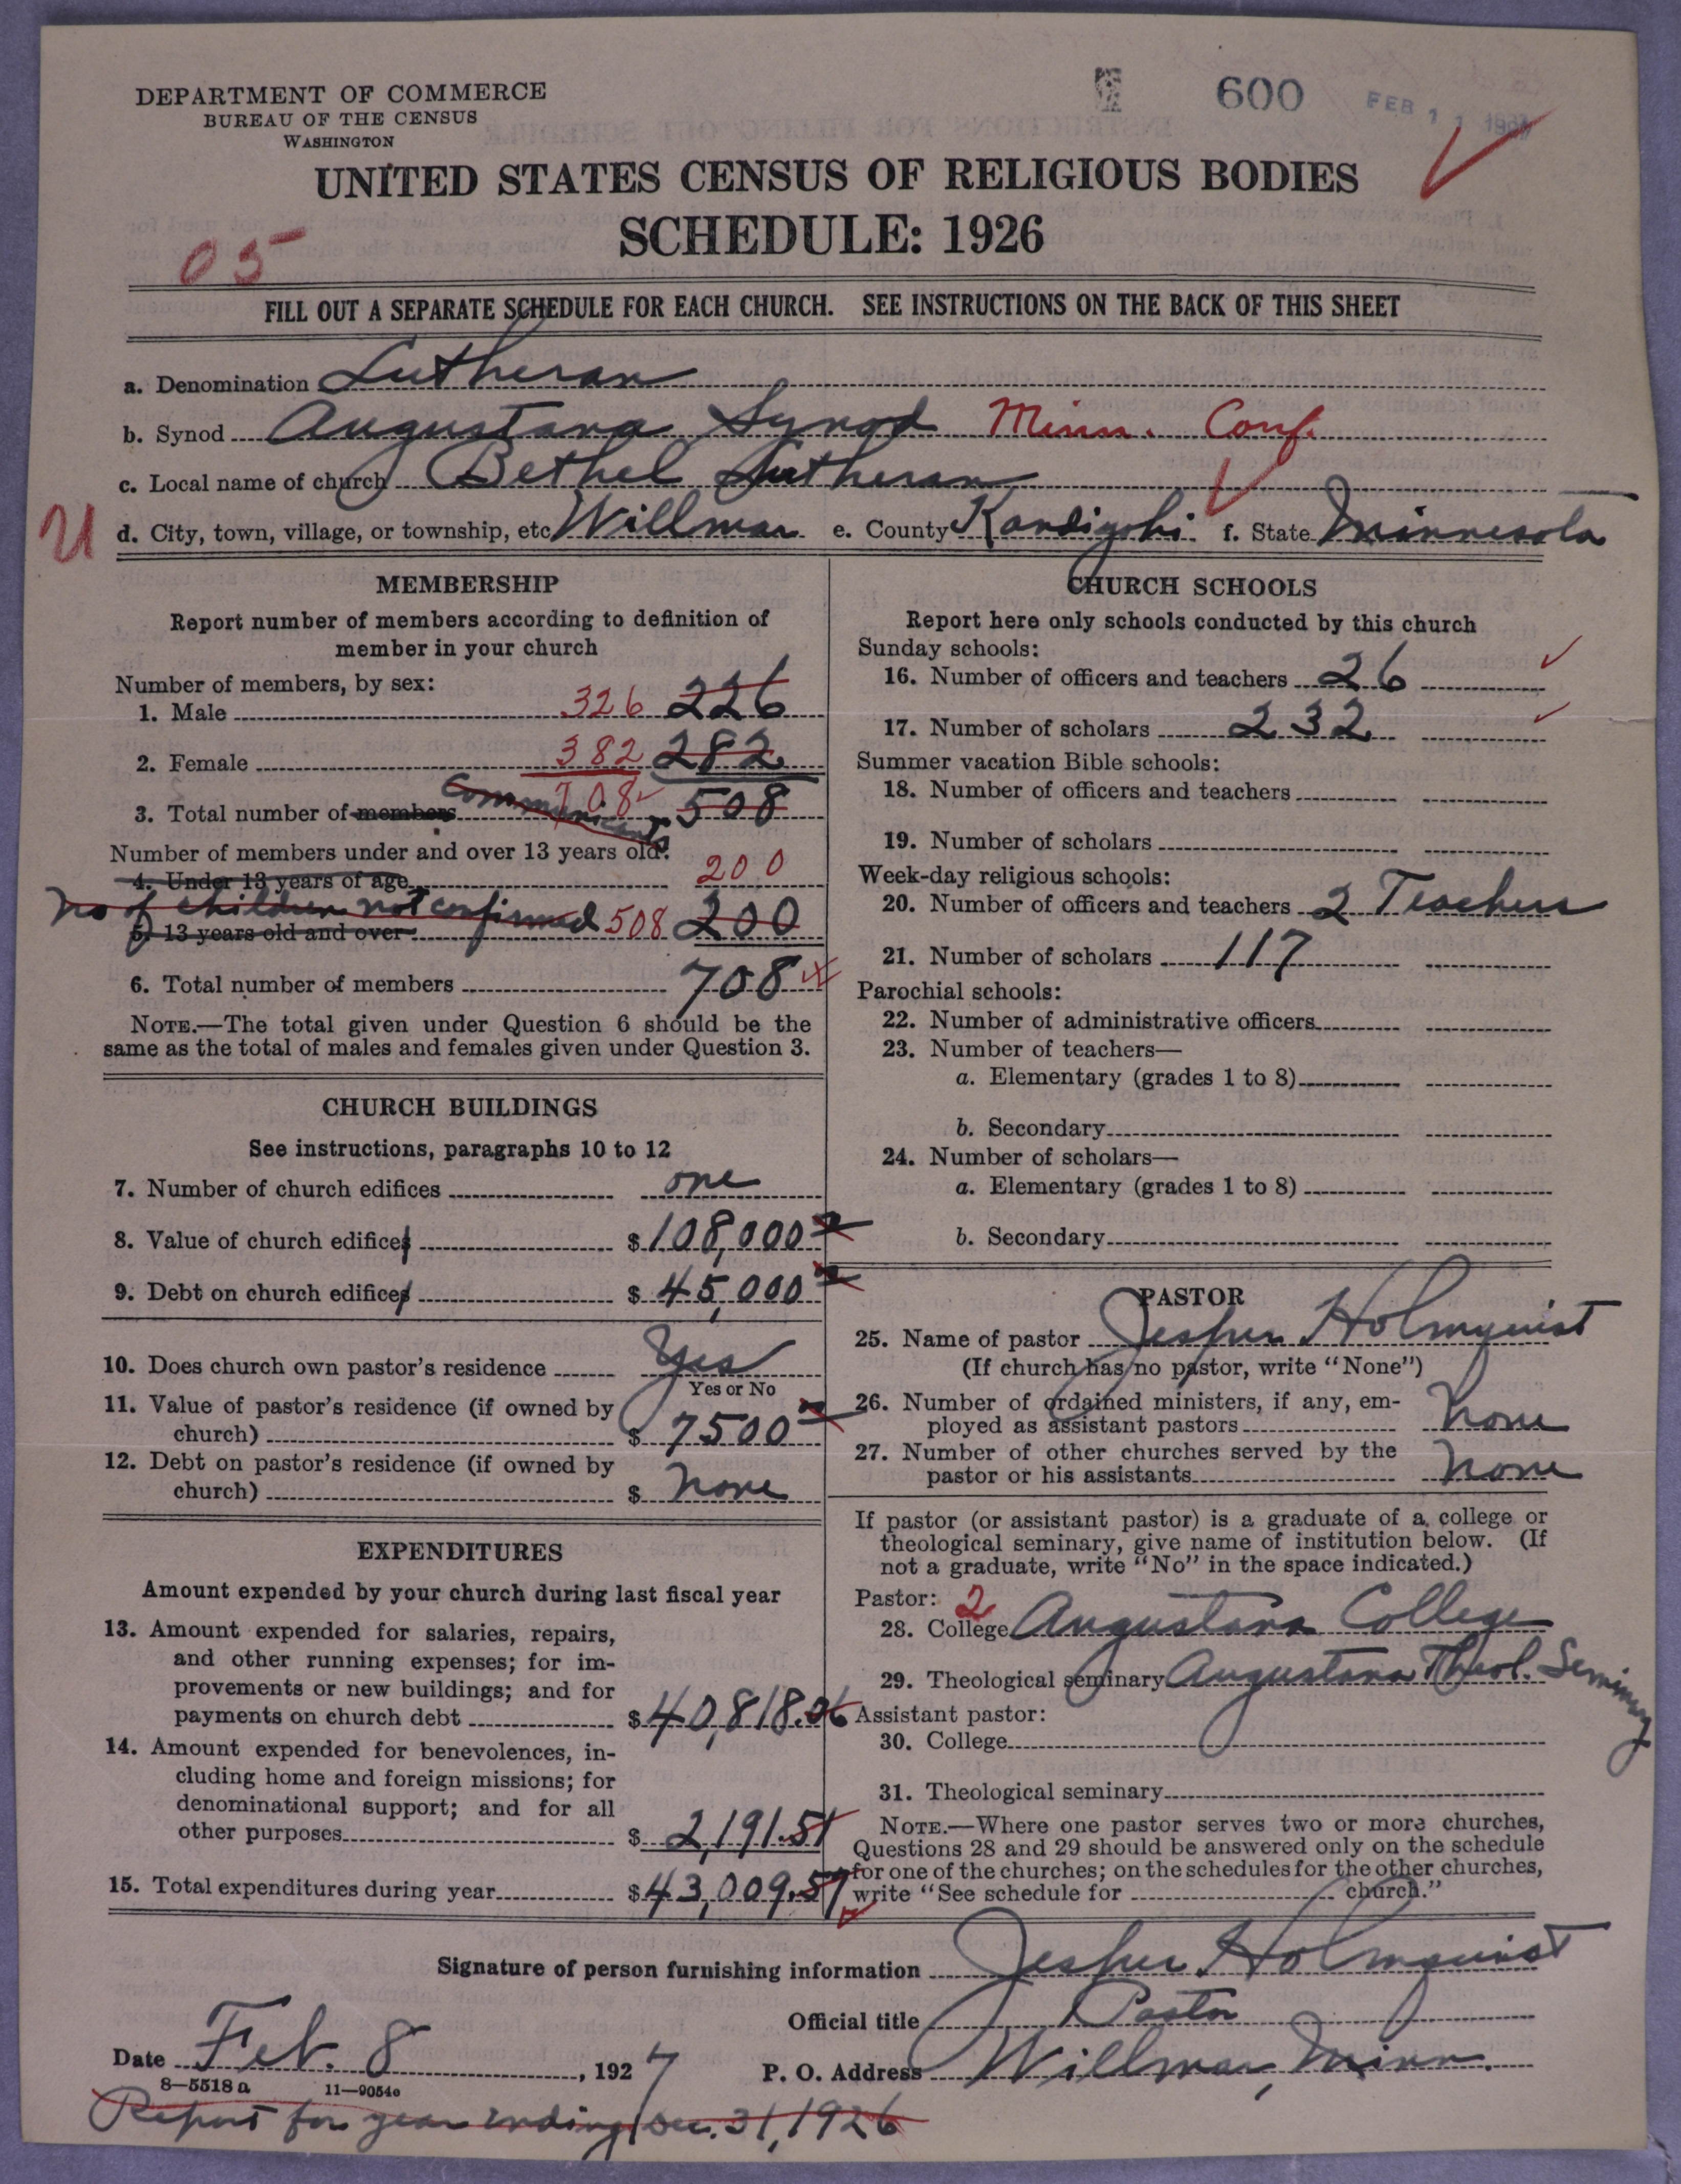 DEPARTMENT OF COMMERCE
BUREAU OF THE CENSUS
WASHINGTON
600
FEB 11
UNITED STATES CENSUS OF RELIGIOUS BODIES
SCHEDULE: 1926
05
FILL OUT A SEPARATE SCHEDULE FOR EACH CHURCH. SEE INSTRUCTIONS ON THE BACK OF THIS SHEET
a. Denomination Lutheran
b. Synod Augustana Synod Minn. Conf.
c. Local name of church Bethel Lutheran
U d. City, town, village, or township, etc Willmar e. County Kandiyohi f. State Minnesota
MEMBERSHIP
Report number of members according to definition of
member in your church
Number of members, by sex:
1. Male 326 226
2. Female 382 282
3. Total number of members Communicants 708 508
Number of members under and over 13 years old:
4. Under 13 years of age 200
No of children not confirmed 508 200
5. 13 years old and over
6. Total number of members 708
NOTE.—The total given under Question 6 should be the
same as the total of males and females given under Question 3.
CHURCH BUILDINGS
See instructions, paragraphs 10 to 12
7. Number of church edifices one
8. Value of church edifices $108,000
9. Debt on church edifices $45,000
10. Does church own pastor's residence Yes
Yes or No
11. Value of pastor's residence (if owned by
church) $7500
12. Debt on pastor's residence (if owned by
church) $ none
EXPENDITURES
Amount expended by your church during last fiscal year
13. Amount expended for salaries, repairs,
and other running expenses; for im-
provements or new buildings; and for
payments on church debt $40,818.06
14. Amount expended for benevolences, in-
cluding home and foreign missions; for
denominational support; and for all
other purposes $2,191.51
15. Total expenditures during year $43,009.57
CHURCH SCHOOLS
Report here only schools conducted by this church
Sunday schools:
16. Number of officers and teachers 26
17. Number of scholars 232
Summer vacation Bible schools:
18. Number of officers and teachers
19. Number of scholars
Week-day religious schools:
20. Number of officers and teachers 2 Teachers
21. Number of scholars 117
Parochial schools:
22. Number of administrative officers
23. Number of teachers—
a. Elementary (grades 1 to 8)
b. Secondary
24. Number of scholars—
a. Elementary (grades 1 to 8)
b. Secondary
PASTOR
25. Name of pastor Jesper Holmquist
(If church has no pastor, write "None")
26. Number of ordained ministers, if any, em-
ployed as assistant pastors None
27. Number of other churches served by the
pastor or his assistants None
If pastor (or assistant pastor) is a graduate of a college or
theological seminary, give name of institution below. (If
not a graduate, write "No" in the space indicated.)
Pastor: 2
28. College Augustana College
29. Theological seminary Augustana Theol. Seminary
Assistant pastor:
30. College
31. Theological seminary
NOTE.—Where one pastor serves two or more churches,
Questions 28 and 29 should be answered only on the schedule
for one of the churches; on the schedules for the other churches,
write "See schedule for church."
Signature of person furnishing information Jesper Holmquist
Official title Pastor
Date Feb. 8, 1927 P. O. Address Willmar, Minn.
8—5518 a 11—9054c
Report for year ending Dec. 31, 1926